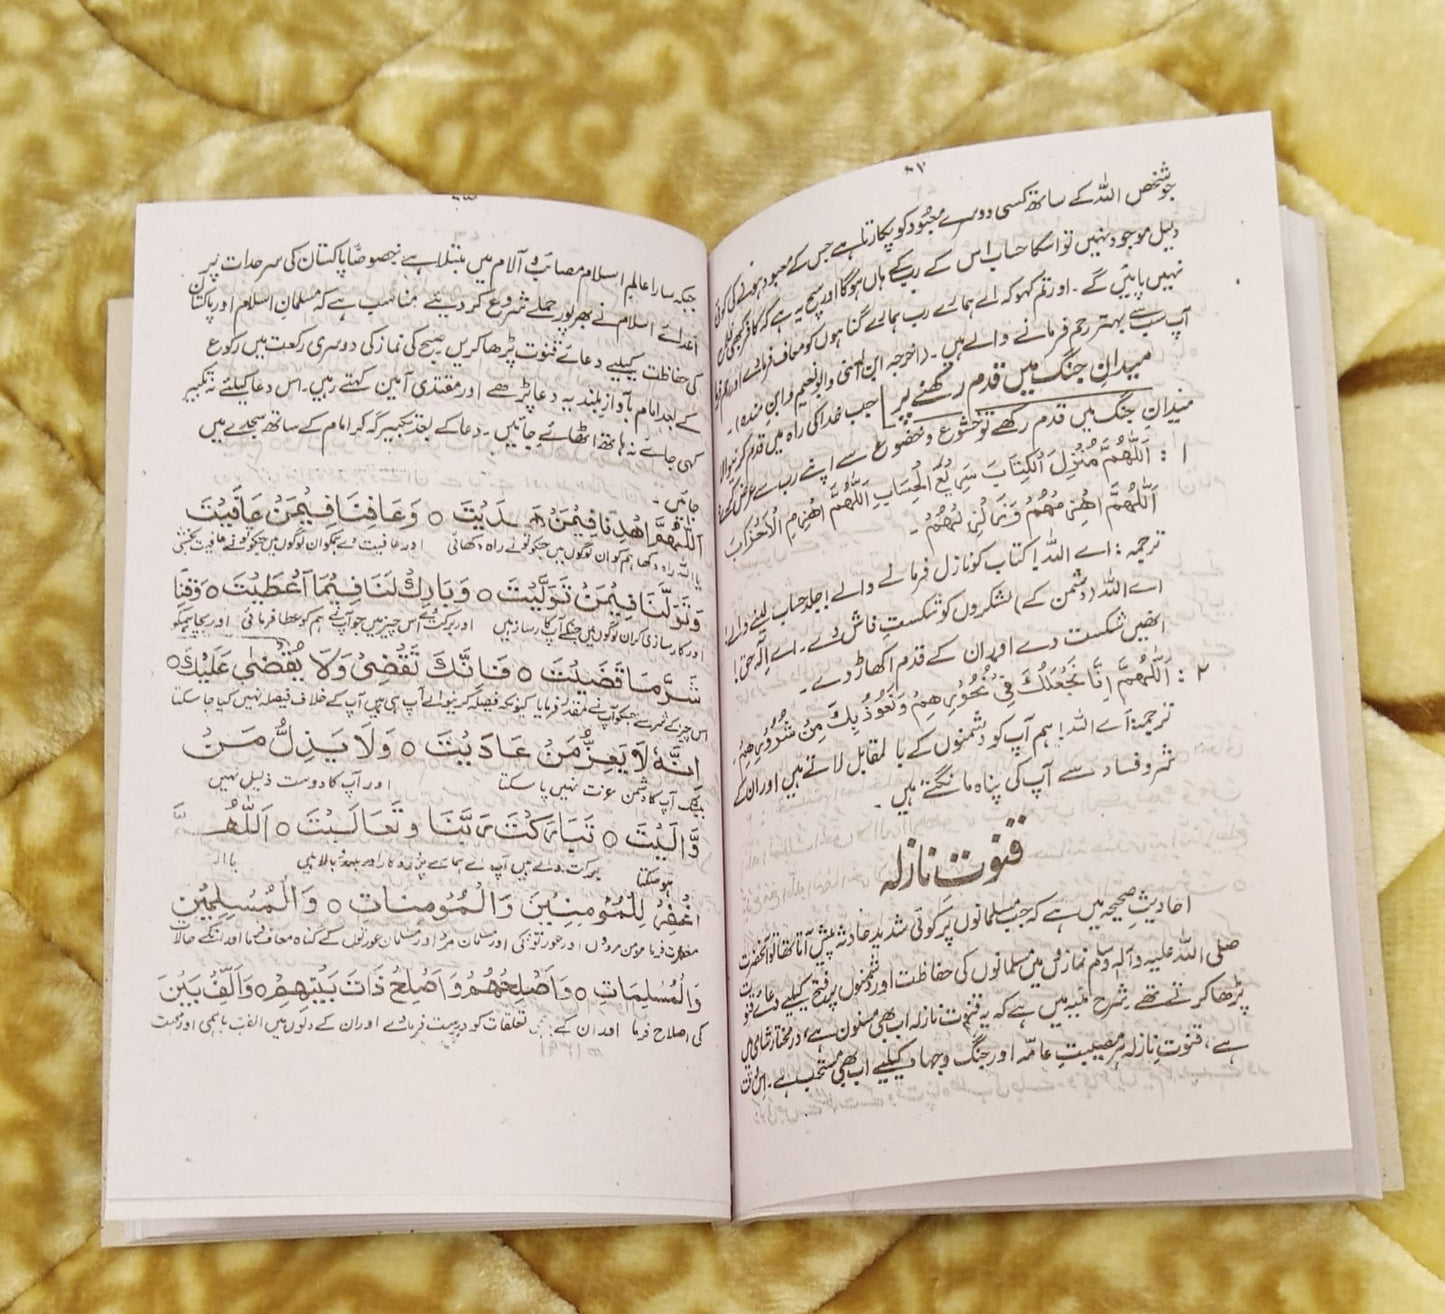 جو شخص اللہ کے ساتھ کسی دوسرے معبود کو پکارتا ہے جس کے معبود ہونے کی کوئی
دلیل موجود نہیں تو اسکا حساب اس کے رب کے ہاں ہوگا اور سچ یہ ہے کہ کافر کبھی فلاح
نہیں پائیں گے۔ اور تم کہو کہ اے ہمارے رب ہمارے گناہوں کو معاف فرما دے اور رحم فرما
آپ سب سے بہتر رحم فرمانے والے ہیں۔ (اخرجہ ابن السنی و ابو نعیم و ابن مندہ)۔
میدانِ جنگ میں قدم رکھنے پر
جب خدا کی راہ میں قدم کرنیوالا
میدانِ جنگ میں قدم رکھے تو خشوع و خضوع سے اپنے رب سے عرض کرے
۱ : اَللّٰهُمَّ مُنْزِلَ الْكِتَابَ سَرِيْعُ الْحِسَابِ اَللّٰهُمَّ اهْزِمِ الْاَحْزَابَ
اَللّٰهُمَّ اهْزِمْهُمْ وَزَلْزِلْهُمْ۔
ترجمہ: اے اللہ! کتاب کو نازل فرمانے والے! جلد حساب لینے والے!
اے اللہ (دشمن کے) لشکروں کو شکستِ فاش دے۔ اے الٰہ حق!
انھیں شکست دے اور ان کے قدم اکھاڑ دے۔
۲ : اَللّٰهُمَّ اِنَّا نَجْعَلُكَ فِىْ نُحُوْرِهِمْ وَنَعُوْذُ بِكَ مِنْ شُرُوْرِهِمْ
ترجمہ: اے اللہ! ہم آپ کو دشمنوں کے بالمقابل لاتے ہیں اور ان کے
شر و فساد سے آپ کی پناہ مانگتے ہیں۔
قنوت نازلہ
احادیثِ صحیحہ میں ہے کہ جب مسلمانوں پر کوئی شدید حادثہ پیش آتا تھا تو آنحضرت
صلی اللہ علیہ وآلہ وسلم نمازوں میں مسلمانوں کی حفاظت اور دشمنوں پر فتح کیلیے دعائے قنوت
پڑھا کرتے تھے۔ شرح منیہ میں ہے کہ یہ قنوت نازلہ اب بھی مسنون ہے، درمختار شامی میں
ہے، قنوتِ نازلہ ہر مصیبتِ عامّہ اور جنگ و جہاد کیلیے اب بھی مستحب ہے۔ اس وقت
جبکہ سارا عالم اسلام مصائب و آلام میں مبتلا ہے خصوصًا پاکستان کی سرحدات پر
اعدائے اسلام نے بھرپور حملے شروع کر دیئے مناسب ہے کہ مسلمان اسلام اور پاکستان
کی حفاظت کیلیے دعائے قنوت پڑھا کریں صبح کی نماز کی دوسری رکعت میں رکوع
کے بعد امام بآواز بلند یہ دعا پڑھے اور مقتدی آمین کہتے رہیں۔ اس دعا کیلئے نہ تکبیر
کہی جائے نہ ہاتھ اٹھائے جائیں۔ دعا کے بعد تکبیر کہہ کر امام کے ساتھ سجدے میں
جائیں۔
اَللّٰهُمَّ اهْدِنَا فِيْمَنْ هَدَيْتَ ○ وَعَافِنَا فِيْمَنْ عَافَيْتَ
یا اللہ راہ دکھا ہم کو ان لوگوں میں جنکو تونے راہ دکھائی اور عافیت دے ہمکو ان لوگوں میں جنکو تونے عافیت بخشی
وَتَوَلَّنَا فِيْمَنْ تَوَلَّيْتَ ○ وَبَارِكْ لَنَا فِيْمَا اَعْطَيْتَ ○ وَقِنَا
اور کارسازی کر ان لوگوں میں جنکے آپ کارساز ہیں اور برکت دے اس چیز میں جو آپ نے ہم کو عطا فرمائی اور بچا ہمکو
شَرَّ مَا قَضَيْتَ ○ فَاِنَّكَ تَقْضِىْ وَلَا يُقْضٰى عَلَيْكَ ○
اس چیز کے شر سے جسکو آپ نے مقدر فرمایا کیونکہ فیصلہ کرنیوالے آپ ہی ہیں آپ کے خلاف فیصلہ نہیں کیا جا سکتا
اِنَّهٗ لَا يَعِزُّ مَنْ عَادَيْتَ ○ وَلَا يَذِلُّ مَنْ
بیشک آپ کا دشمن عزت نہیں پا سکتا اور آپ کا دوست ذلیل نہیں
وَّالَيْتَ ○ تَبَارَكْتَ رَبَّنَا وَتَعَالَيْتَ ○ اَللّٰهُمَّ
ہوسکتا برکت والے ہیں آپ اے ہمارے پروردگار اور بلند و بالا ہیں یا اللہ
اغْفِرْ لِلْمُؤْمِنِيْنَ وَالْمُؤْمِنَاتِ ○ وَالْمُسْلِمِيْنَ
مغفرت فرما مومن مردوں اور عورتوں کی اور مسلمان مرد اور مسلمان عورتوں کے گناہ معاف فرما اور انکے حالات
وَالْمُسْلِمَاتِ ○ وَاَصْلِحْهُمْ وَاَصْلِحْ ذَاتَ بَيْنِهِمْ ○ وَاَلِّفْ بَيْنَ
کی اصلاح فرما اور ان کے تعلقات کو درست فرمادے اور ان کے دلوں میں الفت باہمی اور محبت